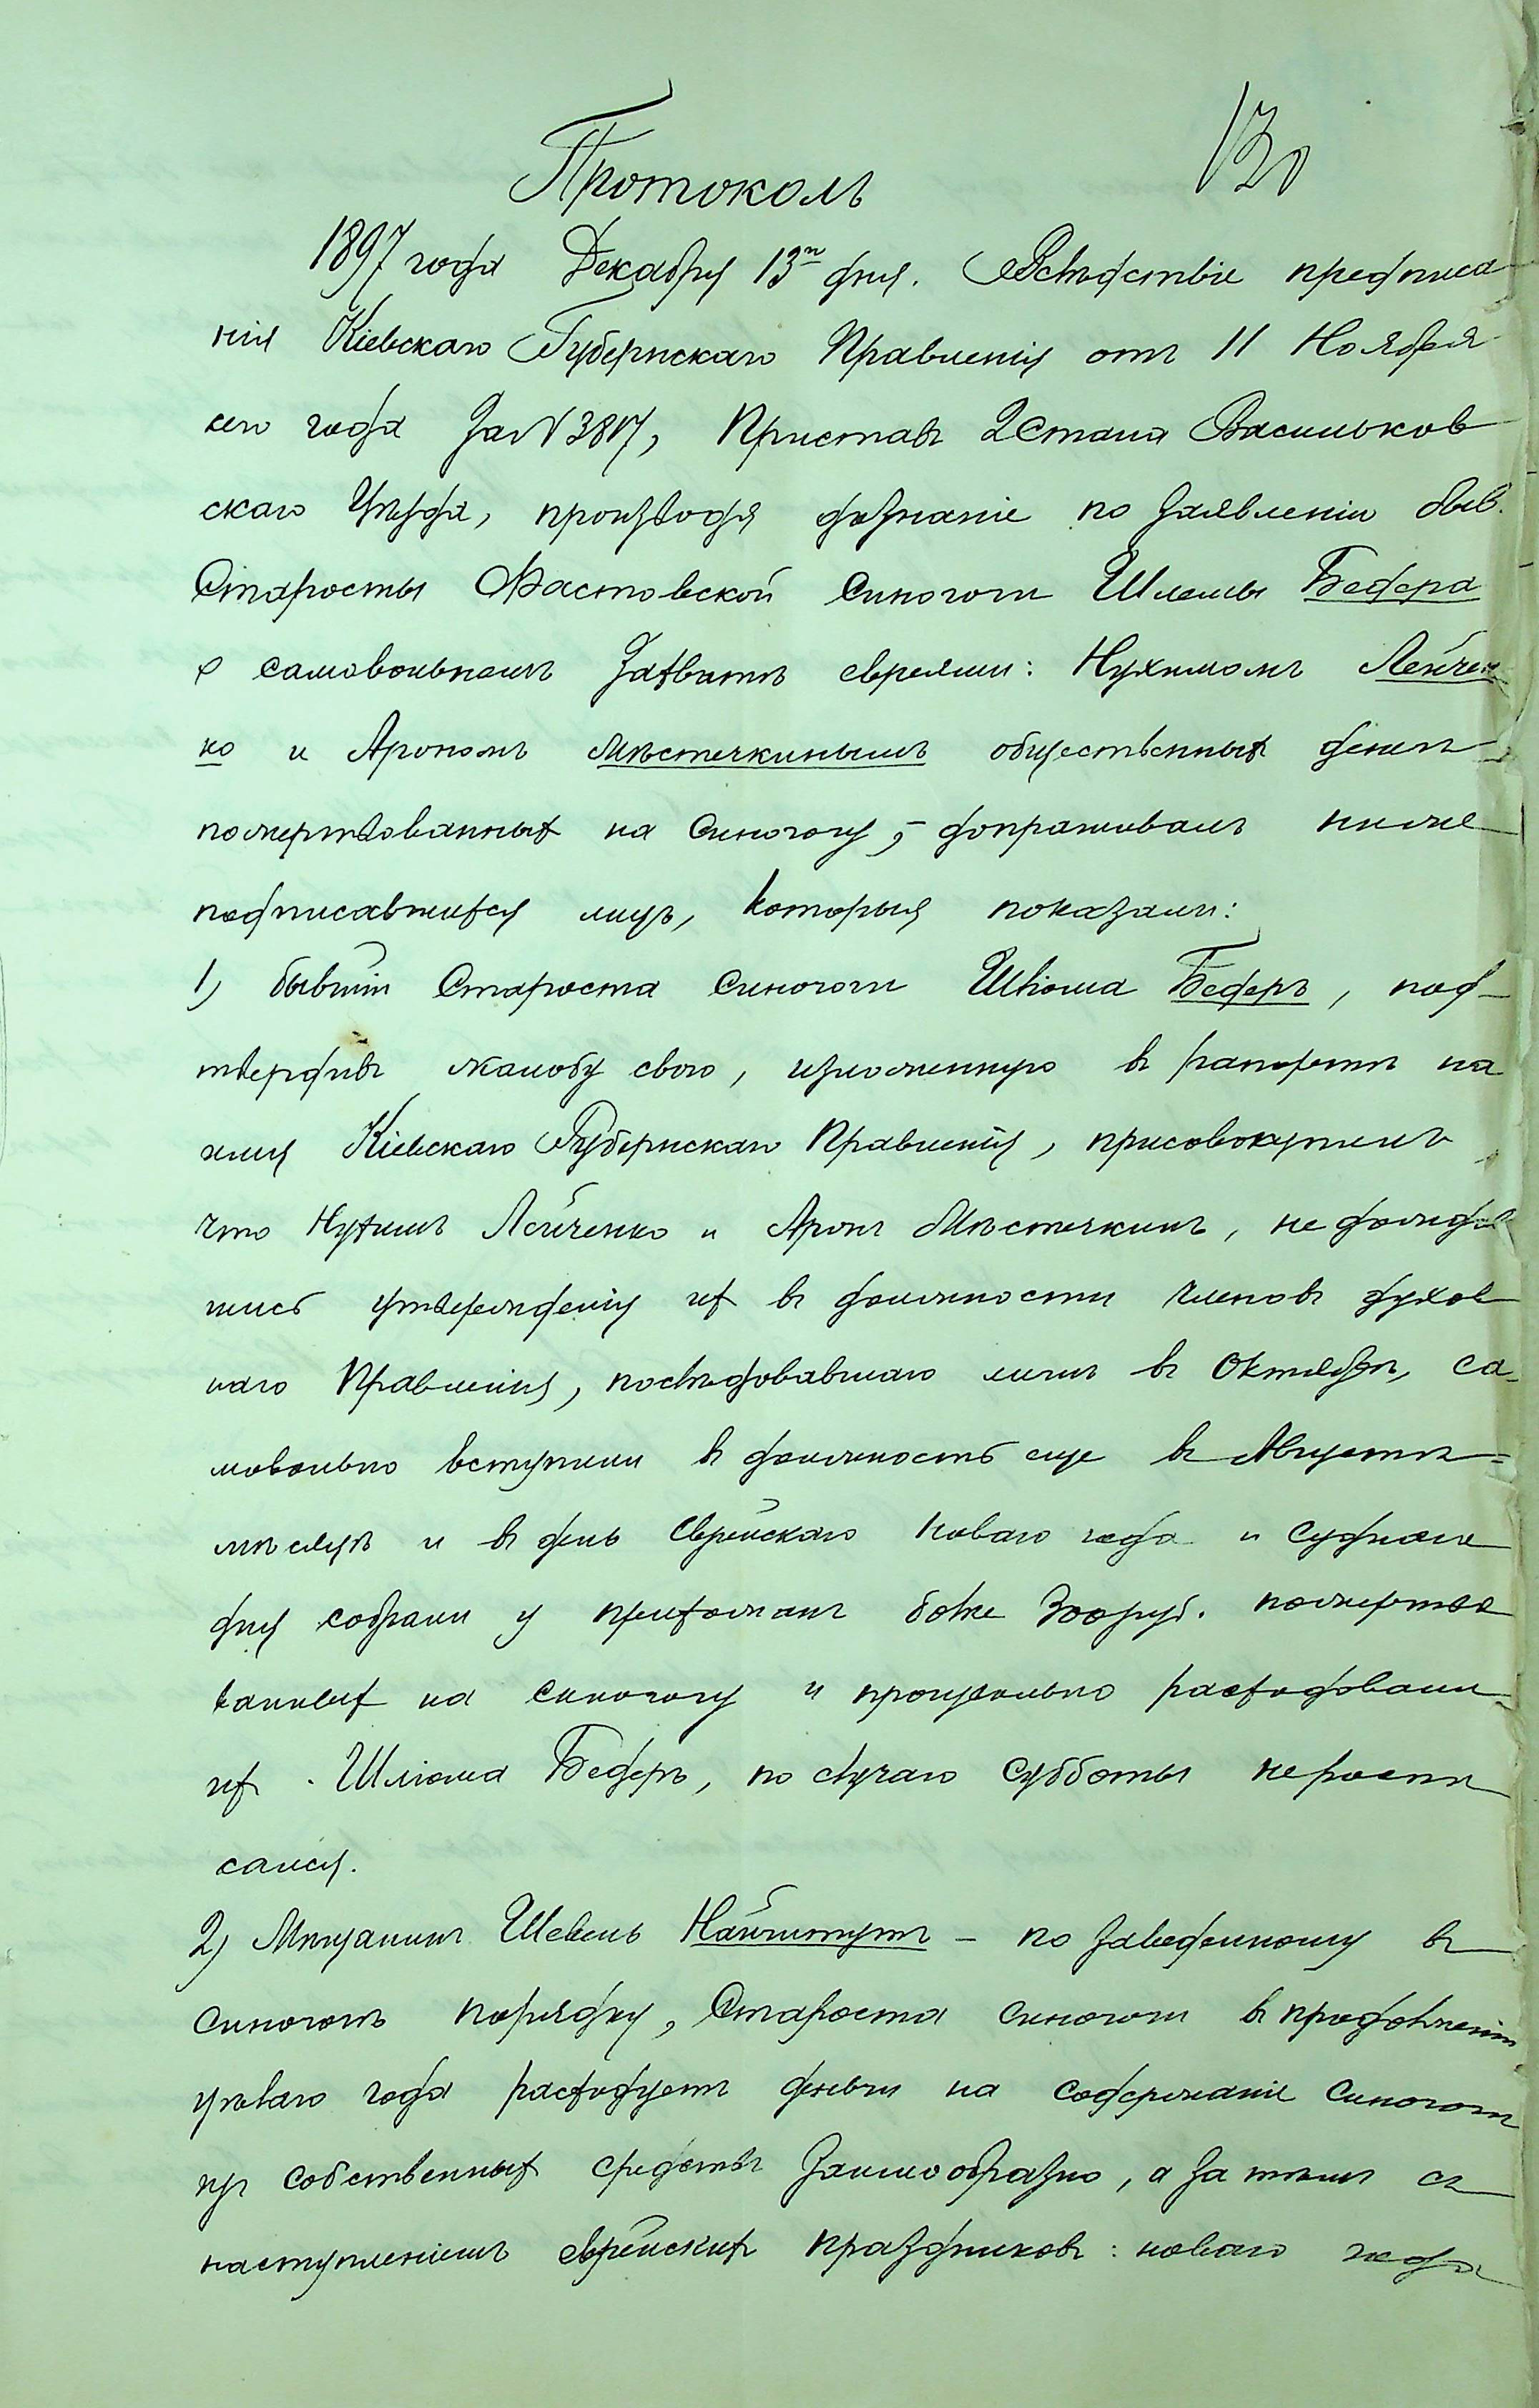 130
Протоколъ
1897 года Декабря 13го дня. Вслѣдствіе предписа
нія Кіевскаго Губернскаго Правленія отъ 11 Ноября
сего года За № 3817, Приставъ 2 Стана Васильков
скаго Уѣзда, производя дознаніе по заявленію быв.
Старосты Фастовской Синогоги Шлемы Бедера
о самовольномъ Захватѣ евреями: Нухимомъ Лейчен
ко и Арономъ Мѣстечкинымъ общественныхъ денегъ
пожертвованныхъ на Синогогу, – допрашивалъ ниже
подписавшихся лицъ, которыя показали:
1) бывшій Староста Синогоги Шлёма Бедеръ, под-
твердивъ жалобу свою, изложенную въ рапортѣ на
имя Кіевскаго Губернскаго Правленія, присовокупилъ
что Нухимъ Лейченко и Аронъ Мѣстечкинъ, не дождав
шись утвержденія ихъ въ должности членовъ духов
наго Правленія, послѣдовавшаго лишь въ Октябрѣ, са-
мовольно вступили въ должность еще въ Августѣ
мѣсяцѣ и въ день Еврейскаго Новаго года и Суднаго
дня собрали у прихожанъ болѣе 300 руб. пожертво
ванныхъ на синогогу и произвольно расходовали
ихъ. Шлёма Бедеръ, по случаю Субботы нероспи
сался.
2) Мѣщанинъ Шевель Найштутъ – по Заведенному въ
Синогогѣ порядку, Староста Синогоги въ продолженіи
цѣлаго года расходуетъ деньги на содержаніе Синогоги
изъ собственныхъ средствъ Заимообразно, а За тѣмъ съ
наступленіемъ еврейскихъ праздниковъ: новаго года